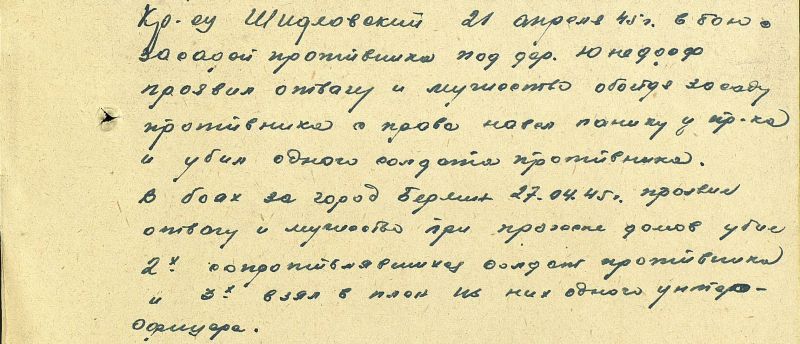 Кр-ец Шидловский 21 апреля 45г. в бою с
засадой противника под дер. Юнедорф
проявил отвагу и мужество обойдя засаду
противника с права навел панику у пр-ка
и убил одного солдата противника.
В боях за город Берлин 27.04.45г. проявил
отвагу и мужество при прочесе домов убил
2х сопротивлявшихся солдат противника
и 3х взял в плен из них одного унтер-
офицера.